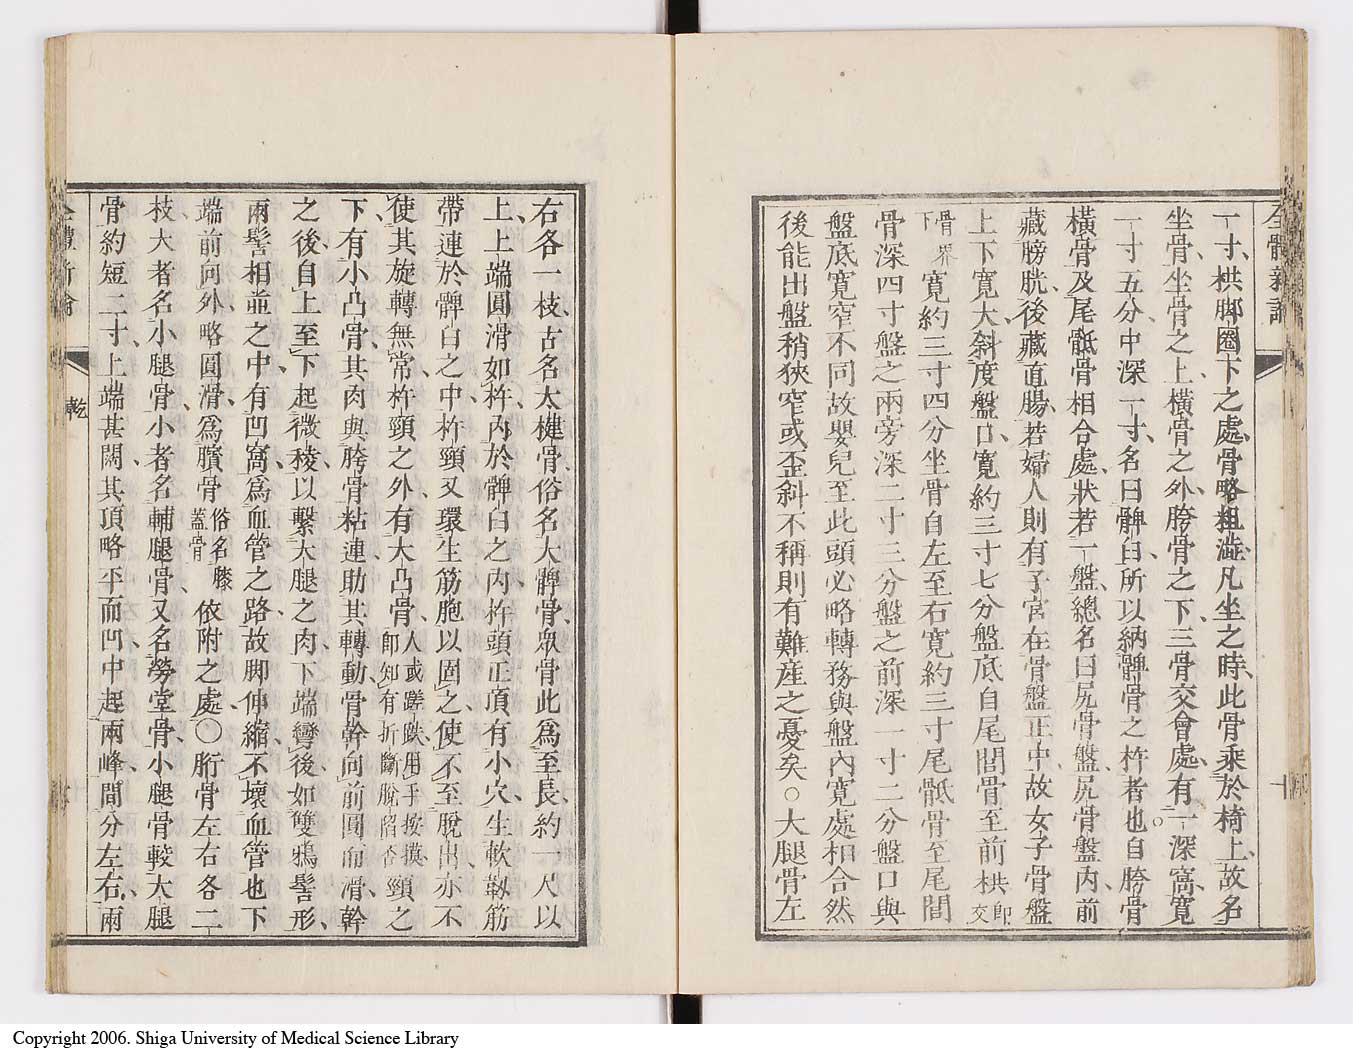 全體新論
一寸、栱脚圈下之處、骨略粗澁、凡坐之時、此骨乘於椅上、故名
坐骨、坐骨之上、橫骨之外、胯骨之下、三骨交會處、有一深窩、寬
一寸五分、中深一寸、名曰髀臼、所以納髀骨之杵者也。自胯骨
橫骨及尾骶骨相合處、狀若一盤、總名曰尻骨盤、尻骨盤內、前
藏膀胱、後藏直腸、若婦人則有子宮在骨盤正中、故女子骨盤
上下寬大、斜度盤口、寬約三寸七分盤底自尾閭骨至前栱卽交
骨界下寬約三寸四分坐骨自左至右寬約三寸尾骶骨至尾閭
骨深四寸盤之兩旁深二寸三分盤之前深一寸二分盤口與
盤底寬窄不同故嬰兒至此頭必略轉務與盤內寬處相合然
後能出盤稍狹窄或歪斜不稱則有難產之憂矣○大腿骨左
十
右各一枝、古名大楗骨、俗名大髀骨、衆骨此爲至長、約一尺以
上、上端圓滑如杵、內於髀臼之內、杵頭正頂有小穴、生軟韌筋
帶、連於髀臼之中、杵頸又環生筋胞以固之、使不至脫出、亦不
使其旋轉無常、杵頸之外、有大凸骨、人或蹉跌用手按摸卽知有折斷脫陷否頸之
下、有小凸骨、其肉與胯骨粘連、助其轉動、骨幹向前圓而滑、幹
之後、自上至下、起微稜、以繫大腿之肉、下端彎後、如雙鴉髻形、
兩髻相並之中、有凹窩、爲血管之路、故脚伸縮、不壞血管也、下
端前向外、略圓滑、爲臏骨俗名膝蓋骨依附之處、○胻骨左右各二
枝、大者名小腿骨、小者名輔腿骨、又名勞堂骨、小腿骨較大腿
骨約短二寸、上端甚闊、其頂略平而凹、中起兩峰、間分左右、兩
乾
Copyright 2006. Shiga University of Medical Science Library